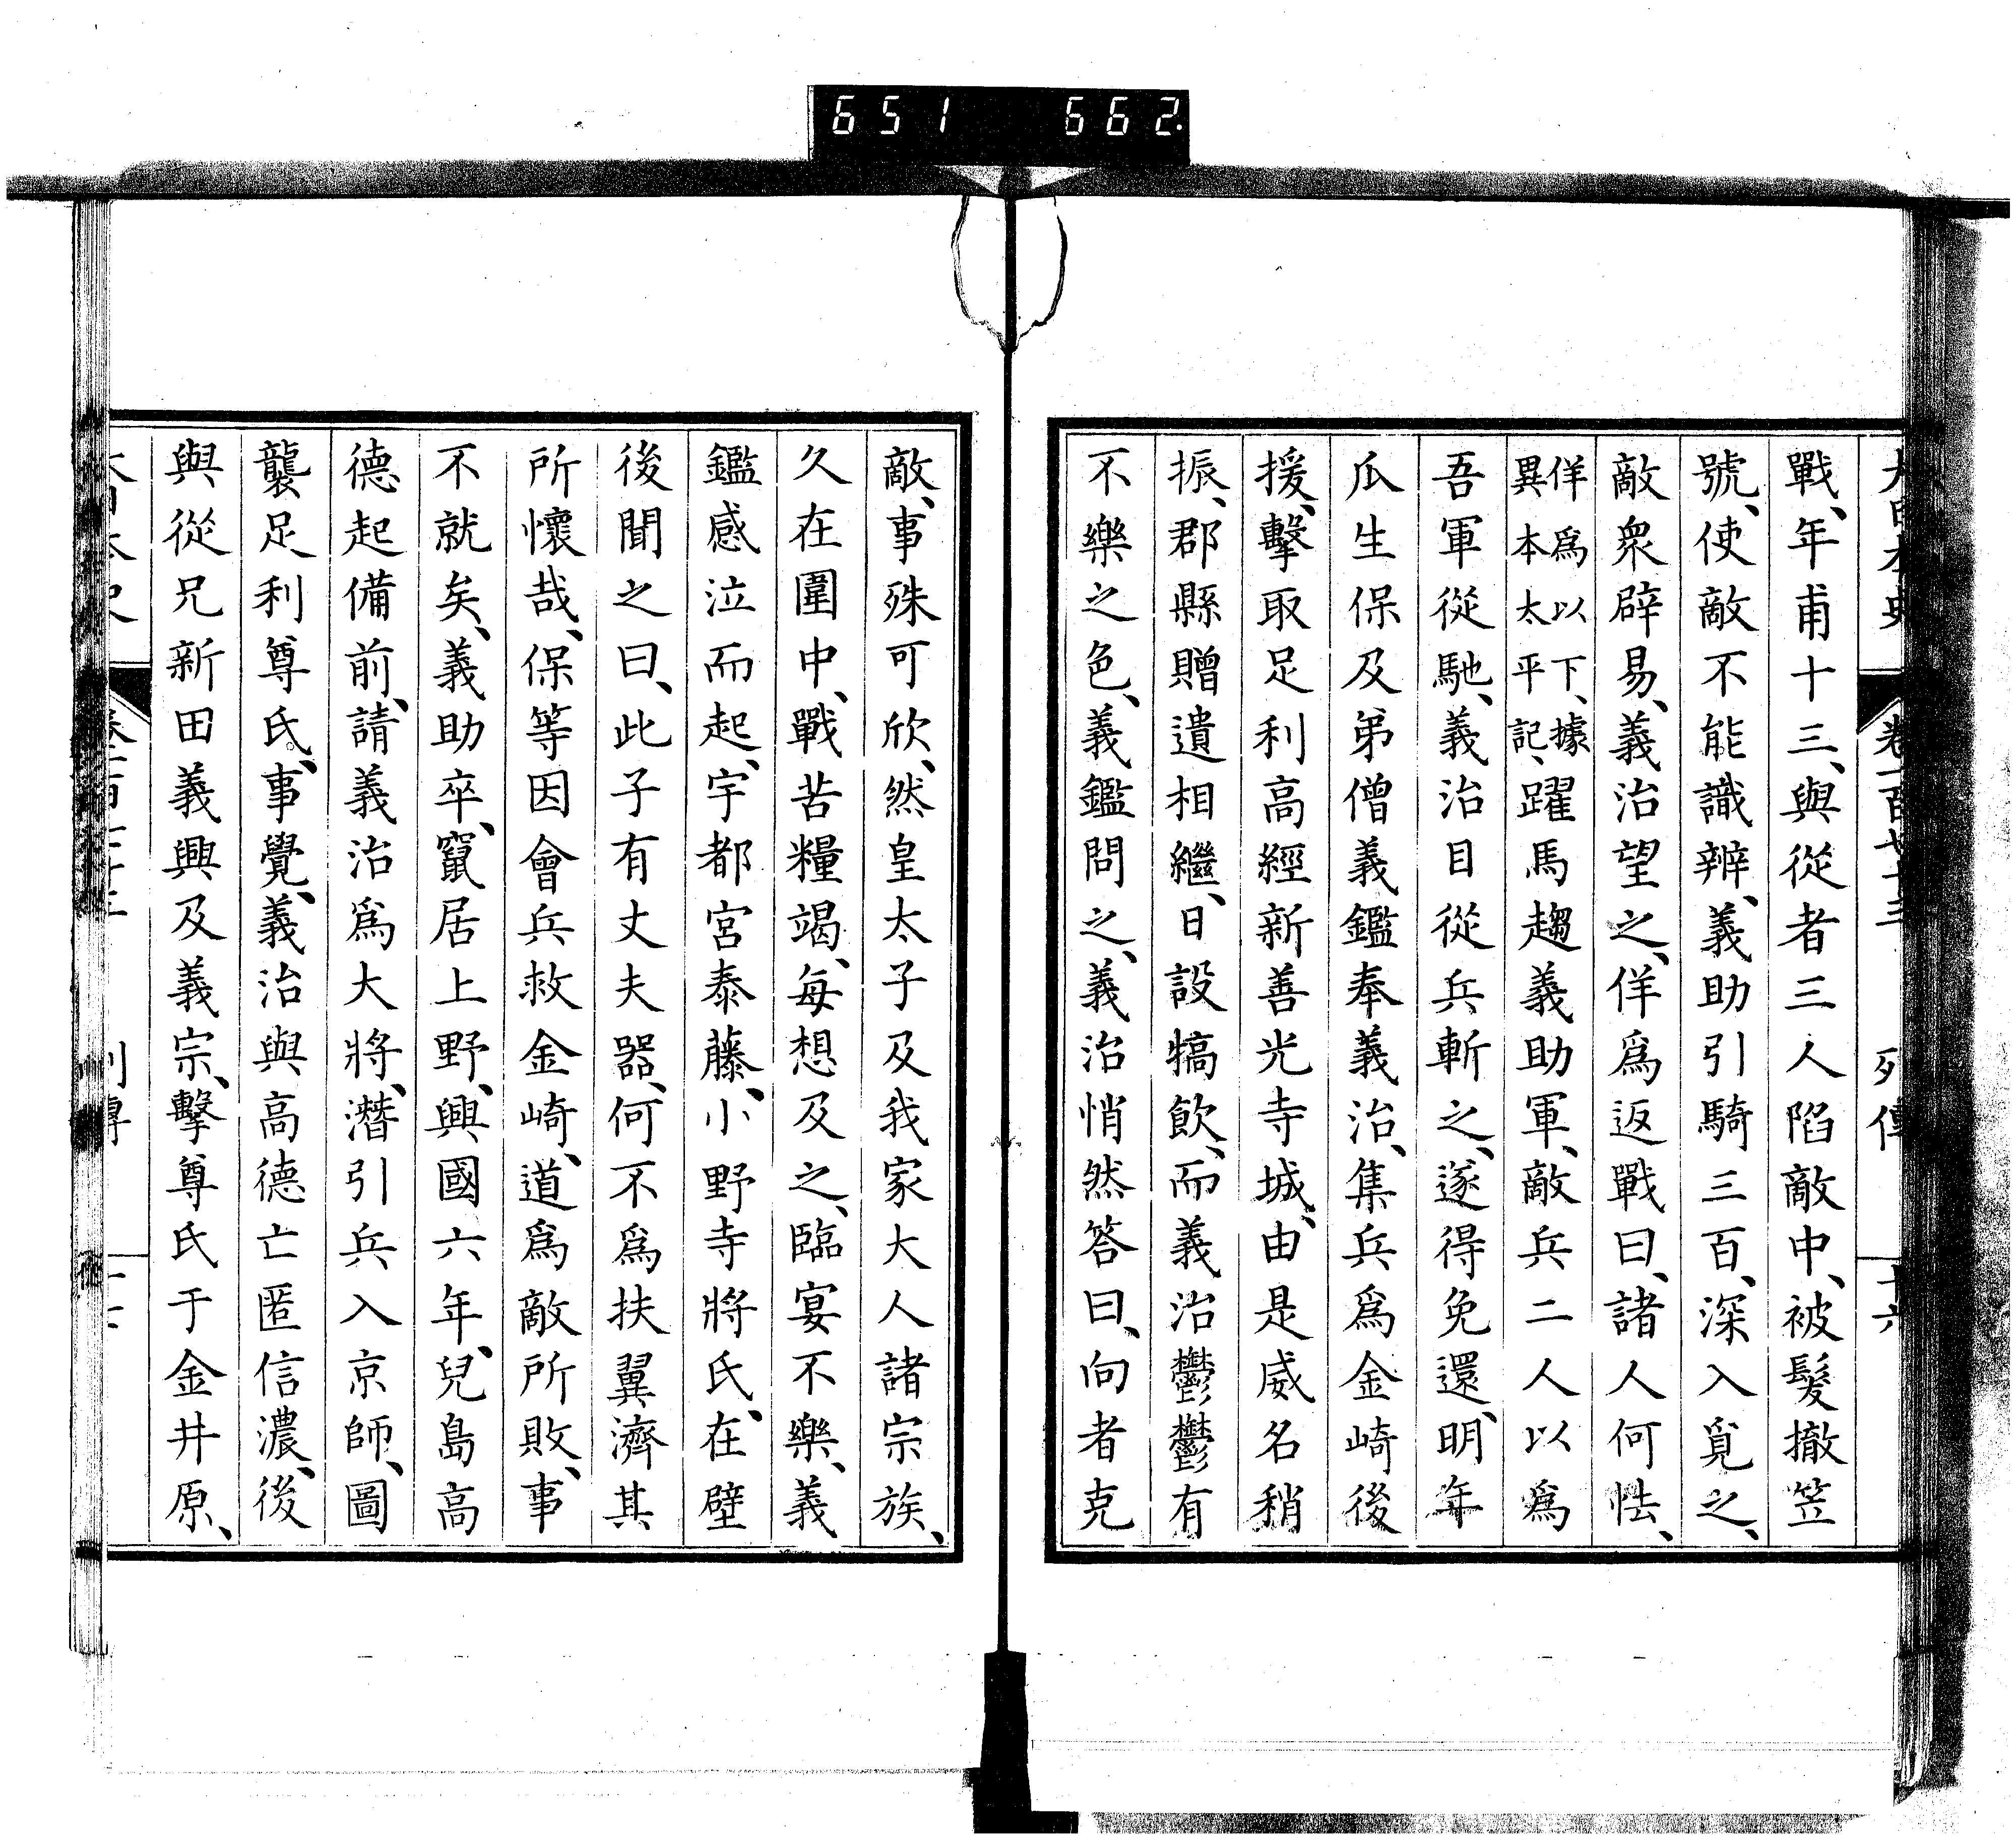 651 662.
大日本史 卷一百七十三 列傳 十六
戰、年甫十三、與從者三人陷敵中、被髮撤笠
號、使敵不能識辨、義助引騎三百、深入覓之、
敵衆辟易、義治望之、佯爲返戰曰、諸人何怯、
佯爲以下、據異本太平記、躍馬趨義助軍、敵兵二人以爲
吾軍從馳、義治目從兵斬之、遂得免還、明年
瓜生保及弟僧義鑑奉義治、集兵爲金崎後
援、擊取足利高經新善光寺城、由是威名稍
振、郡縣贈遺相繼、日設犒飲、而義治鬱鬱有
不樂之色、義鑑問之、義治悄然答曰、向者克
敵、事殊可欣、然皇太子及我家大人諸宗族、
久在圍中、戰苦糧竭、每想及之、臨宴不樂、義
鑑感泣而起、宇都宮泰藤、小野寺將氏、在壁
後聞之曰、此子有丈夫器、何不爲扶翼濟其
所懷哉、保等因會兵救金崎、道爲敵所敗、事
不就矣、義助卒、竄居上野、興國六年、兒島高
德起備前、請義治爲大將、潛引兵入京師、圖
襲足利尊氏、事覺、義治與高德亡匿信濃、後
與從兄新田義興及義宗、擊尊氏于金井原、